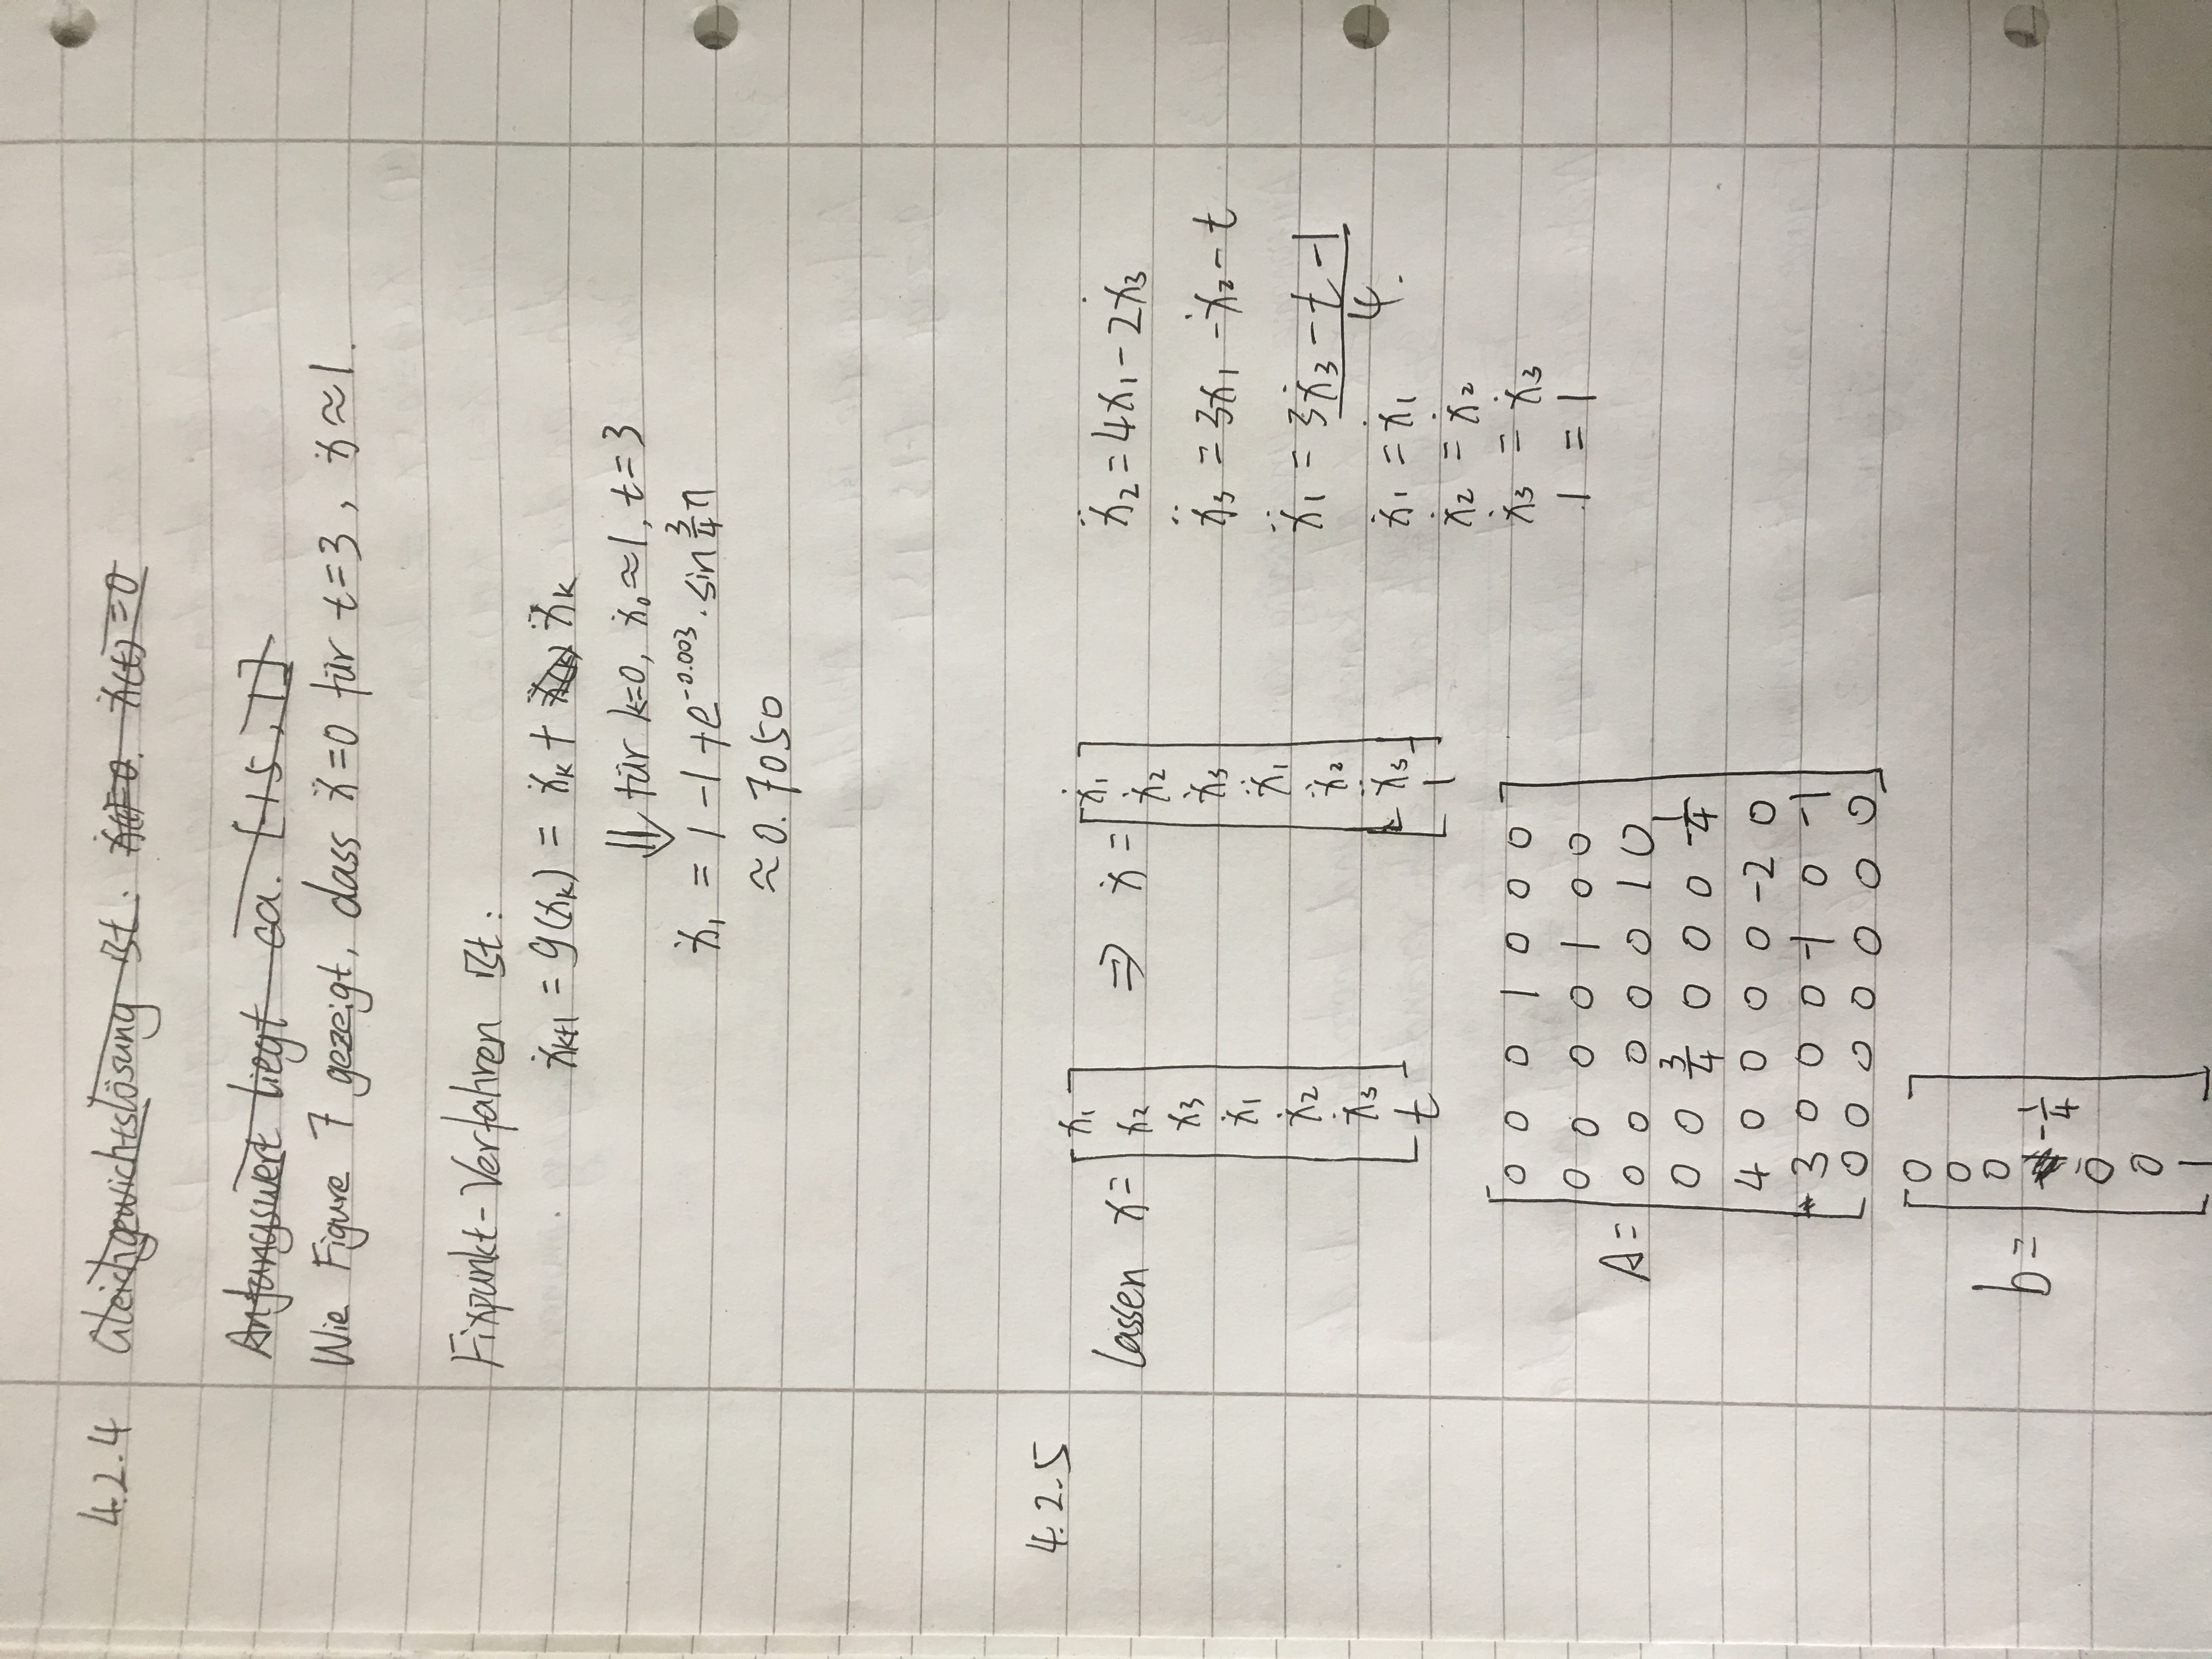 4.2.4 Gleichgewichtslösung ist: ẋ(t)=0. ẋ(t)=0
Anfangswert liegt ca. [1.5, 1]
Wie Figure 7 gezeigt, dass ẍ=0 für t=3, ẋ≈1.
Fixpunkt-Verfahren ist:
ẋₖ₊₁ = g(ẋₖ) = ẋₖ + ẍₖ
⇓ für k=0, ẋ₀≈1, t=3
ẋ₁ = 1 - 1 + e^-0.003 · sin 3/4 π
≈ 0.7050
4.2.5
lassen x = [x₁ x₂ x₃ ẋ₁ ẋ₂ ẋ₃ t] ⇒ ẋ = [ẋ₁ ẋ₂ ẋ₃ ẍ₁ ẍ₂ ẍ₃ 1]
ẍ₂ = 4x₁ - 2ẋ₃
ẍ₃ = 3x₁ - ẋ₂ - t
ẍ₁ = (3ẋ₃ - t - 1)/4.
ẋ₁ = ẋ₁
ẋ₂ = ẋ₂
ẋ₃ = ẋ₃
1 = 1
0 0 0 1 0 0 0
0 0 0 0 1 0 0
A= 0 0 0 0 0 1 0
0 0 3/4 0 0 0 -1/4
4 0 0 0 0 -2 0
3 0 0 0 -1 0 -1
0 0 0 0 0 0 0
0
0
0
b= -1/4
0
0
1